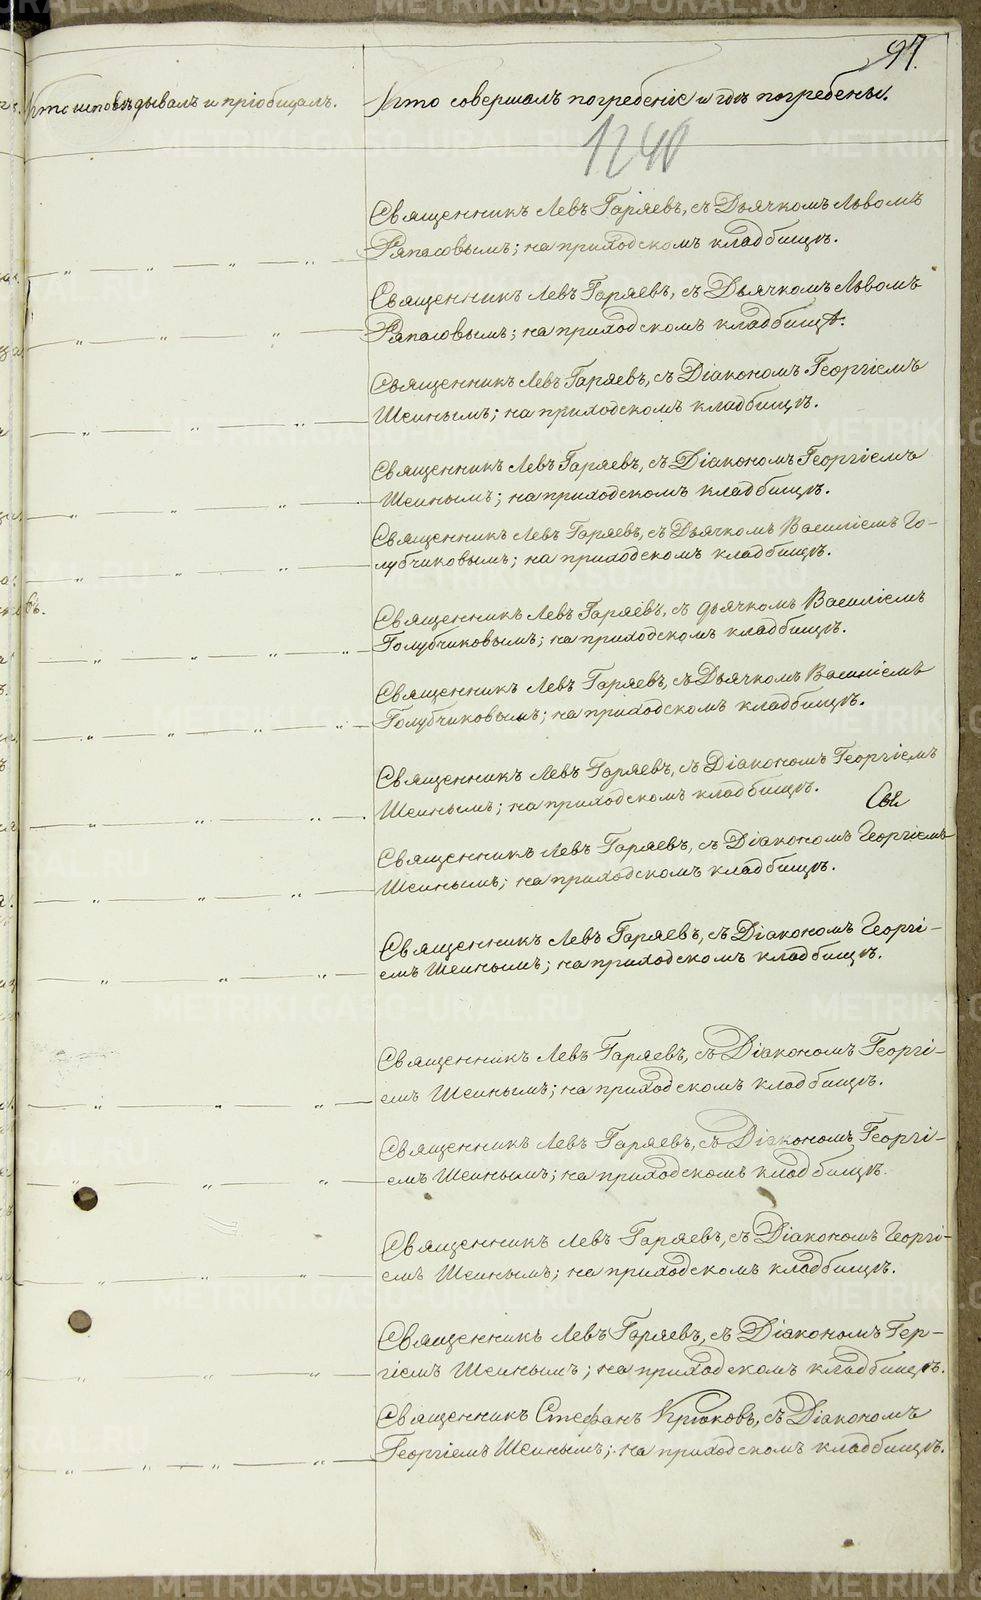 97.
Кто исповѣдывалъ и пріобщалъ.
Кто совершалъ погребеніе и гдѣ погребены.
1240
Священникъ Левъ Гаряевъ, съ Дьячкомъ Львомъ
Ряпасовымъ; на приходскомъ кладбищѣ.
Священникъ Левъ Гаряевъ, съ Дьячкомъ Львомъ
Ряпасовымъ; на приходскомъ кладбищѣ.
Священникъ Левъ Гаряевъ, съ Діакономъ Георгіемъ
Шеинымъ; на приходскомъ кладбищѣ.
Священникъ Левъ Гаряевъ, съ Діакономъ Георгіемъ
Шеинымъ; на приходскомъ кладбищѣ.
Священникъ Левъ Гаряевъ, съ Дьячкомъ Василіемъ Го-
лубчиковымъ; на приходскомъ кладбищѣ.
Священникъ Левъ Гаряевъ, съ дьячкомъ Василіемъ
Голубчиковымъ; на приходскомъ кладбищѣ.
Священникъ Левъ Гаряевъ, съ Дьячкомъ Василіемъ
Голубчиковымъ; на приходскомъ кладбищѣ.
Священникъ Левъ Гаряевъ, съ Діакономъ Георгіемъ
Шеинымъ; на приходскомъ кладбищѣ.
Священникъ Левъ Гаряевъ, съ Діакономъ Георгіемъ
Шеинымъ; на приходскомъ кладбищѣ.
Священникъ Левъ Гаряевъ, съ Діакономъ Георгі-
емъ Шеинымъ; на приходскомъ кладбищѣ.
Священникъ Левъ Гаряевъ, съ Діакономъ Георгі-
емъ Шеинымъ; на приходскомъ кладбищѣ.
Священникъ Левъ Гаряевъ, съ Діакономъ Георгі-
емъ Шеинымъ; на приходскомъ кладбищѣ.
Священникъ Левъ Гаряевъ, съ Діакономъ Георгі-
емъ Шеинымъ; на приходскомъ кладбищѣ.
Священникъ Левъ Гаряевъ, съ Діакономъ Гер-
гіемъ Шеинымъ; на приходскомъ кладбищѣ.
Священникъ Стефанъ Крюковъ, съ Діакономъ
Георгіемъ Шеинымъ; на приходскомъ кладбищѣ.
METRIKI.GASO-URAL.RU